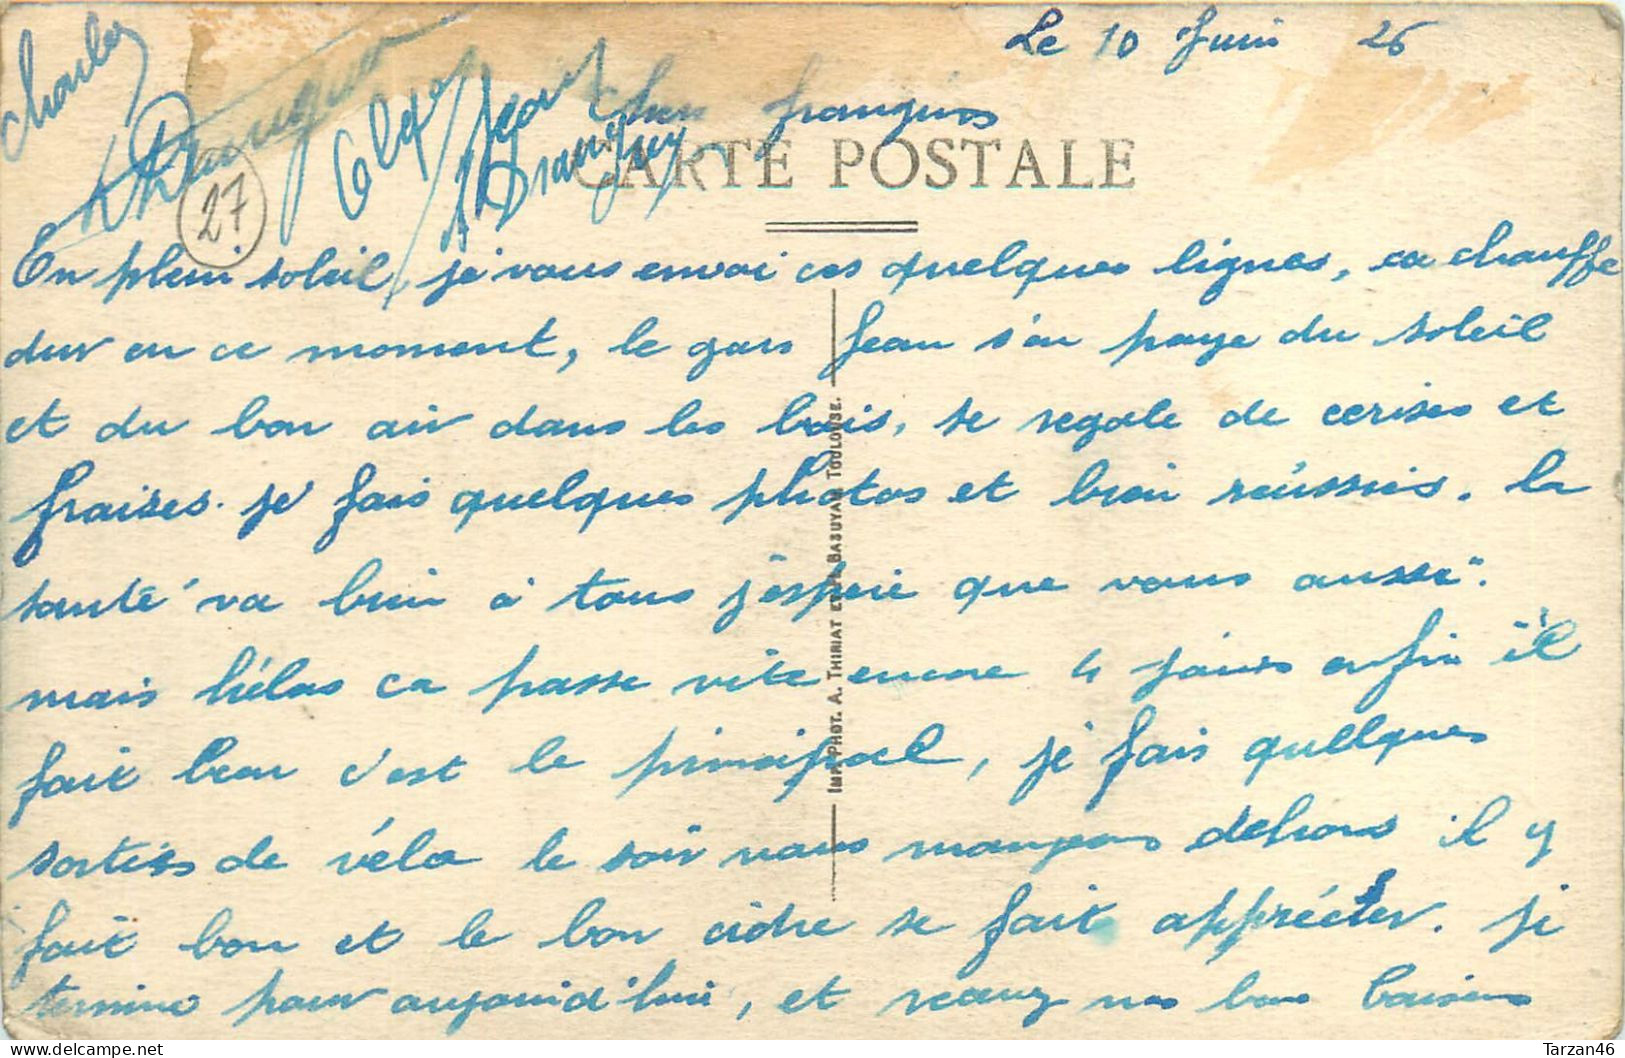 Le 10 Juin 26
Charles
Cher françois
Jean
CARTE POSTALE
27
En plein soleil, je vous envoi ces quelques lignes, ca chauffe
dur en ce moment, le gars Jean s'en paye du soleil
et du bon air dans les bois, se regale de cerises et
fraises. je fais quelques photos et bien réussies. la
santé va bien à tous j'espère que vous aussi.
mais hélas ca passe vite encore 4 jours enfin il
fait beau c'est le principal, je fais quelques
sorties de vélo le soir nous mangeons dehors il y
fait bon et le bon cidre se fait apprécier. je
termine pour aujourd'hui, et recevez nos bons baisers
IMP. PHOT. A. THIRIAT ET F. BASUYAU TOULOUSE.
Tarzan46